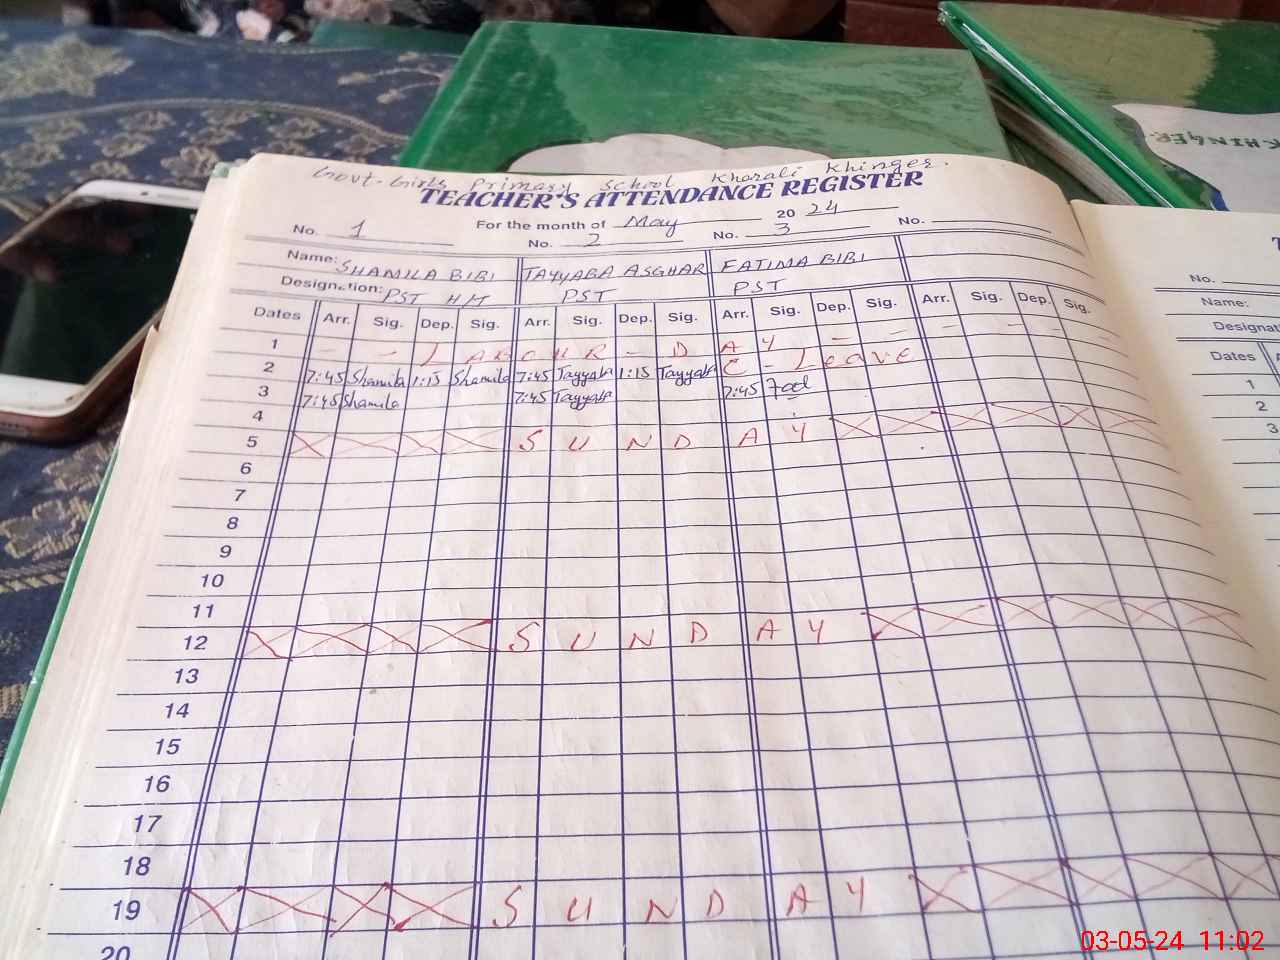 Govt. Girls Primary School Kharali Khinger.
TEACHER'S ATTENDANCE REGISTER
For the month of May 2024
No. 1 No. 2 No. 3 No.
Name: SHAMILA BIBI TAYYABA ASGHAR FATIMA BIBI
Designation: PST HM PST PST
Dates Arr. Sig. Dep. Sig. Arr. Sig. Dep. Sig. Arr. Sig. Dep. Sig. Arr. Sig. Dep. Sig.
1 - - LABOUR - DAY - - - - -
2 7:45 Shamila 1:15 Shamila 7:45 Tayyaba 1:15 Tayyaba C - Leave
3 7:45 Shamila 7:45 Tayyaba 7:45
4
5 SUNDAY
6
7
8
9
10
11
12 SUNDAY
13
14
15
16
17
18
19 SUNDAY
20
KHINGER
No.
Name:
Dates
1
2
3
03-05-24 11:02